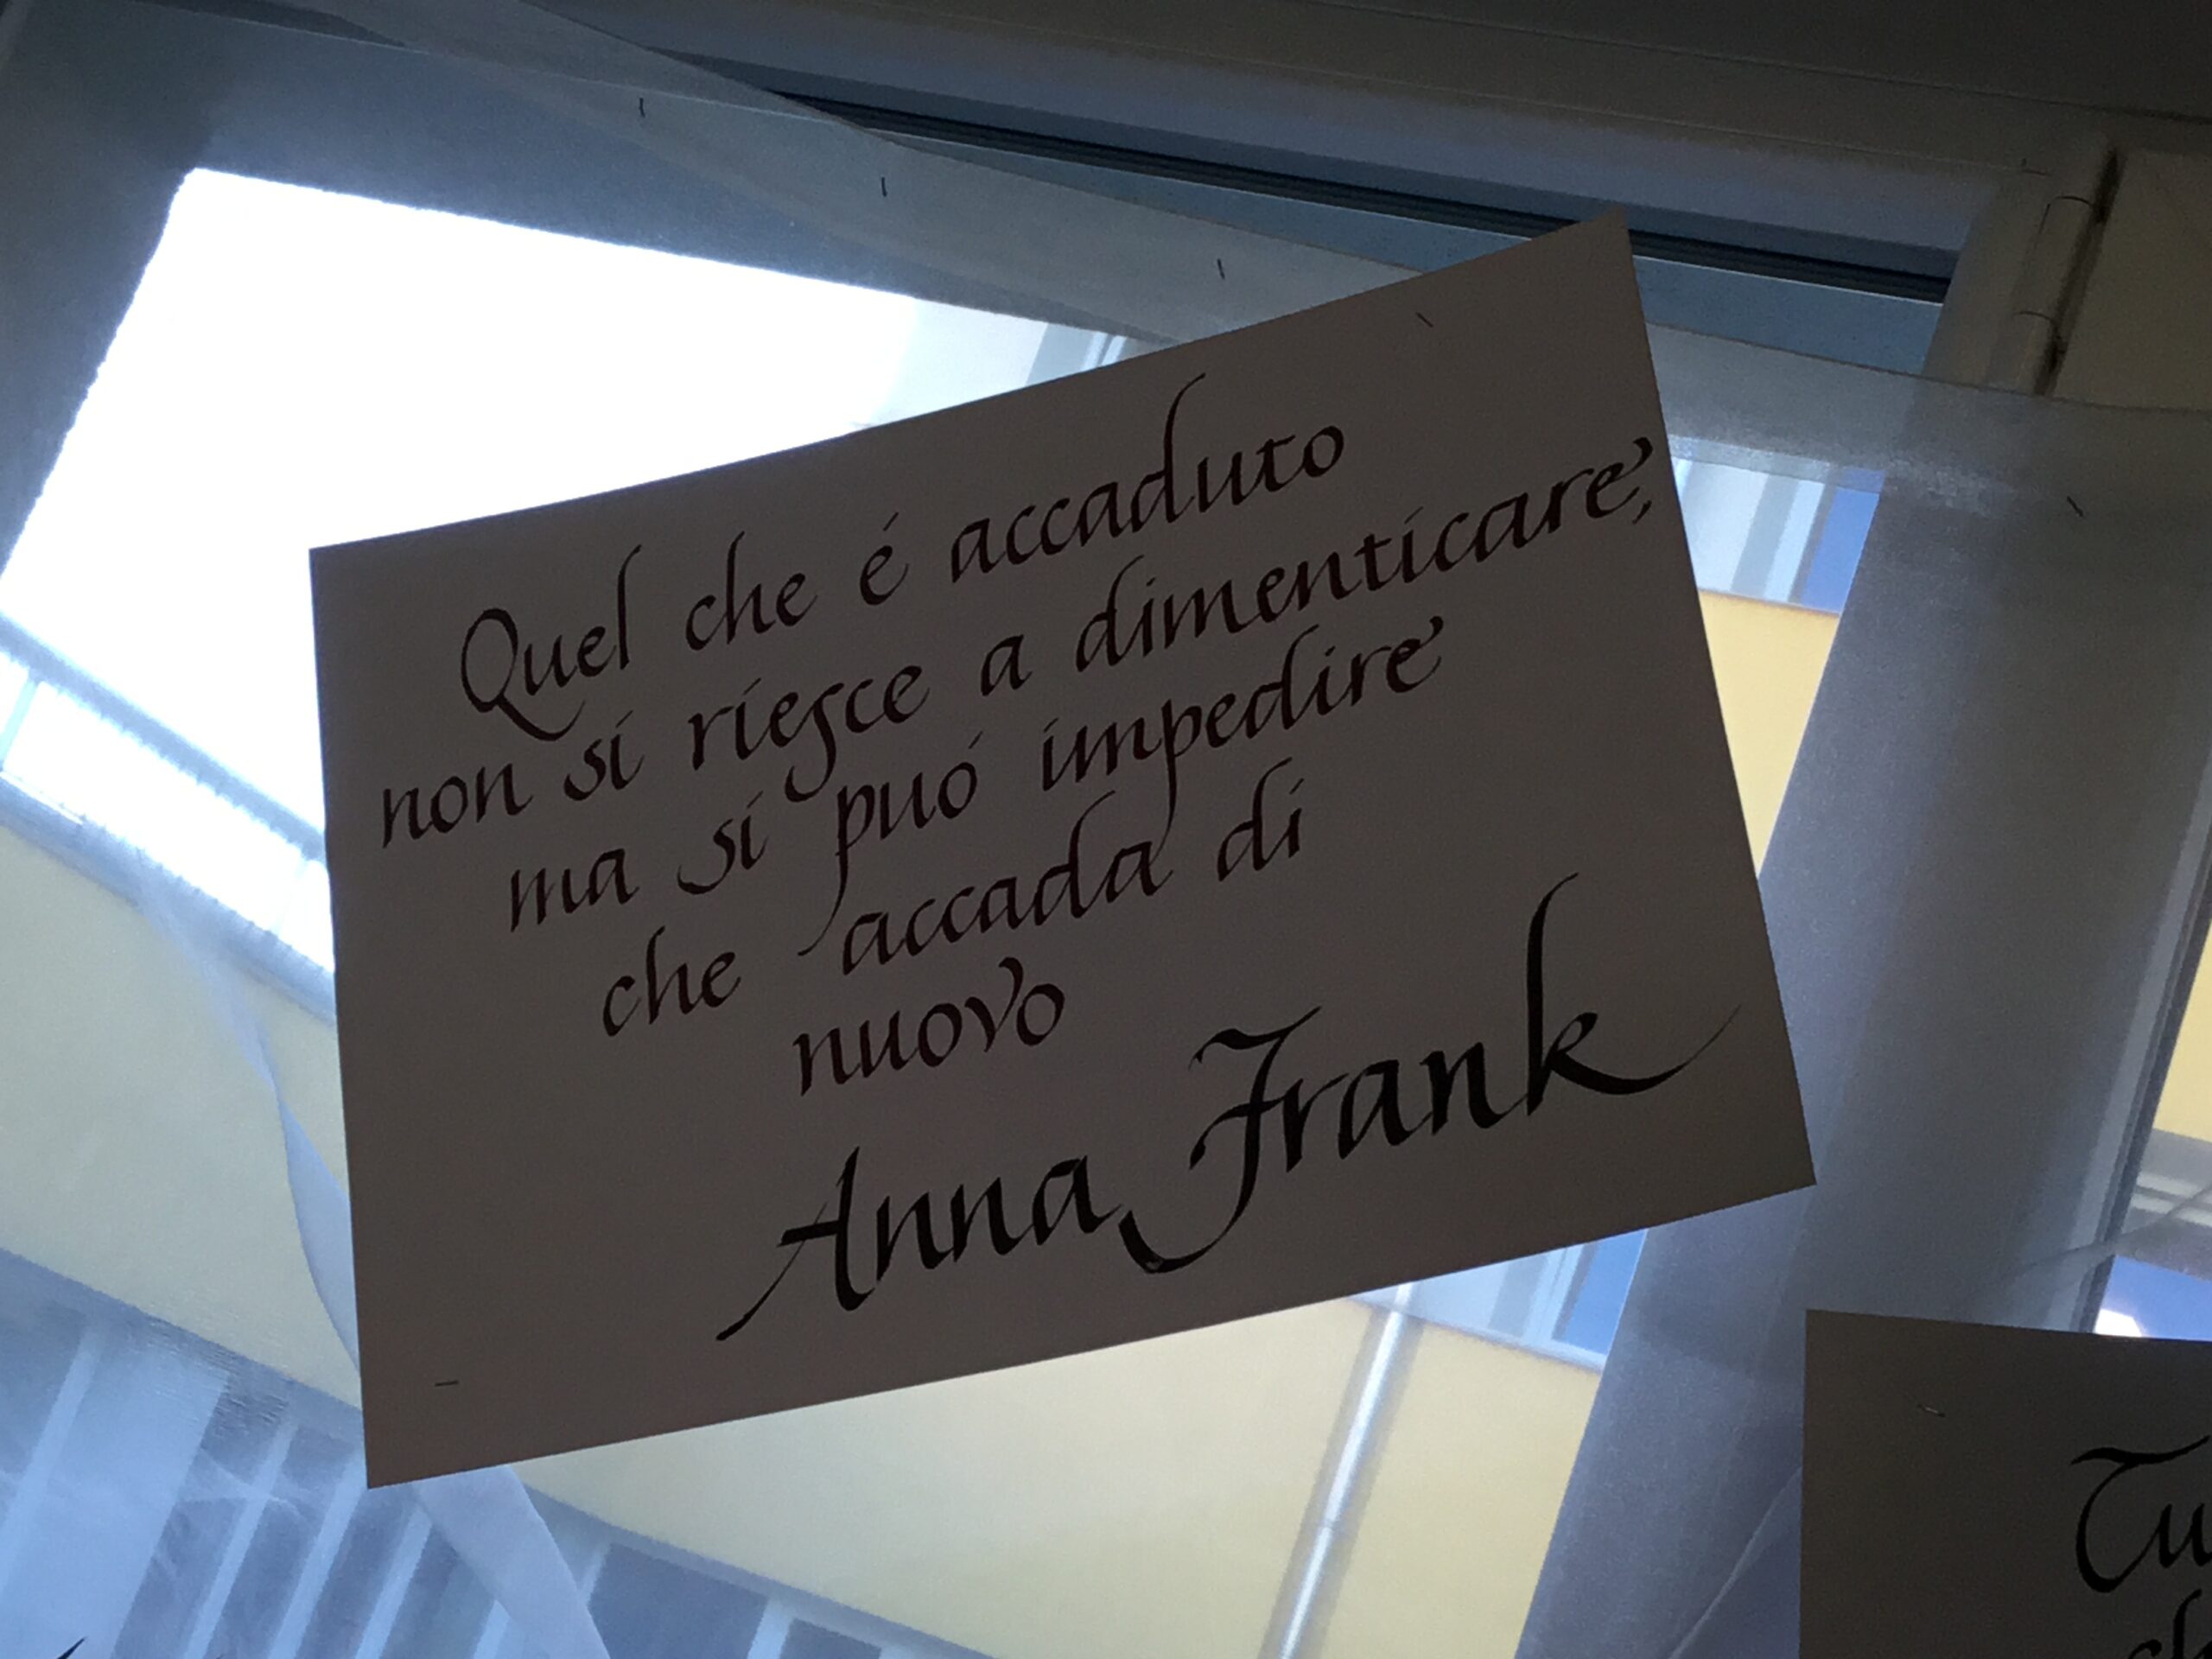 Quel che é accaduto
non si riesce a dimenticare,
ma si puó impedire
che accada di
nuovo
Anna Frank
Tu